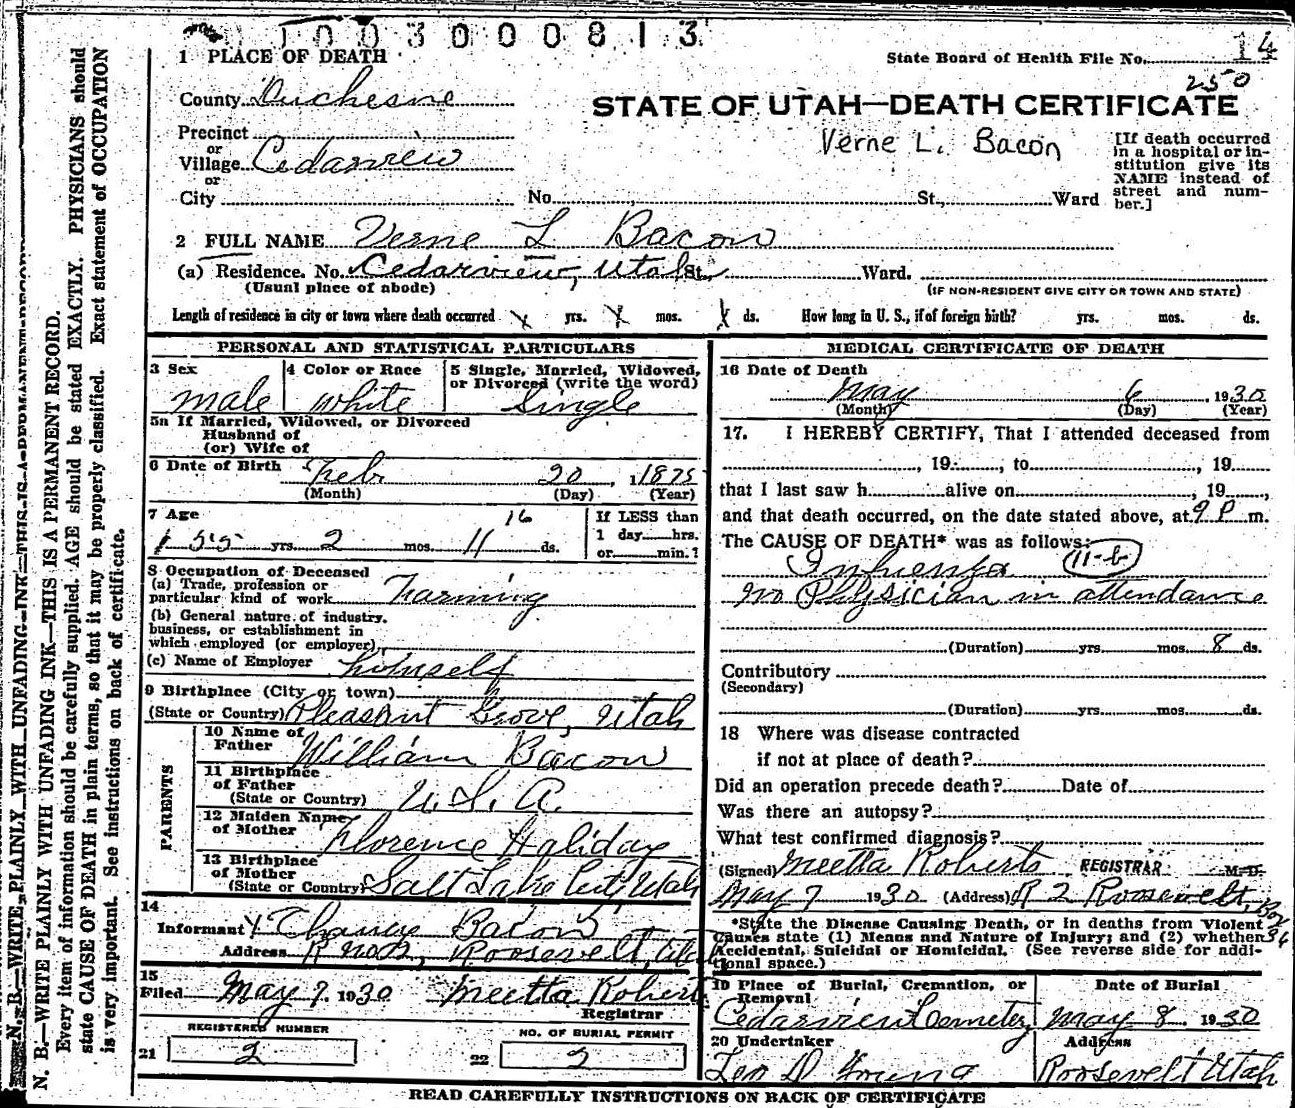 1003000813
1 PLACE OF DEATH
State Board of Health File No. 14
250
County Duchesne
STATE OF UTAH—DEATH CERTIFICATE
Verne L. Bacon
Precinct
or
Village Cedarview
or
City No. St., Ward
[If death occurred
in a hospital or in-
stitution give its
NAME instead of
street and num-
ber.]
2 FULL NAME Verne L Bacon
(a) Residence. No. Cedarview, Utah St. Ward.
(Usual place of abode)
(IF NON-RESIDENT GIVE CITY OR TOWN AND STATE)
Length of residence in city or town where death occurred yrs. mos. ds. How long in U. S., if of foreign birth? yrs. mos. ds.
PERSONAL AND STATISTICAL PARTICULARS
3 Sex
male
4 Color or Race
white
5 Single, Married, Widowed,
or Divorced (write the word)
Single
5a If Married, Widowed, or Divorced
Husband of
(or) Wife of
6 Date of Birth Feb 20, 1875
(Month) (Day) (Year)
7 Age
16
55 yrs. 2 mos. 11 ds.
If LESS than
1 day hrs.
or min.?
8 Occupation of Deceased
(a) Trade, profession or
particular kind of work Farming
(b) General nature of industry,
business, or establishment in
which employed (or employer)
(c) Name of Employer himself
9 Birthplace (City or town)
(State or Country) Pleasant Grove, Utah
PARENTS
10 Name of
Father William Bacon
11 Birthplace
of Father
(State or Country) U. S. A.
12 Maiden Name
of Mother Florence Haliday
13 Birthplace
of Mother
(State or Country) Salt Lake City, Utah
14
Informant Bacon
Address R no 2, Roosevelt, Utah
15
Filed May 7, 1930 Meetta Roberts
Registrar
REGISTERED NUMBER
21 2
NO. OF BURIAL PERMIT
22 2
MEDICAL CERTIFICATE OF DEATH
16 Date of Death
May 6, 1930
(Month) (Day) (Year)
17. I HEREBY CERTIFY, That I attended deceased from
, 19 , to , 19
that I last saw h alive on , 19 ,
and that death occurred, on the date stated above, at 9 P m.
The CAUSE OF DEATH* was as follows:
Influenza 11-b
no Physician in attendance
(Duration) yrs. mos. 8 ds.
Contributory
(Secondary)
(Duration) yrs. mos. ds.
18 Where was disease contracted
if not at place of death?
Did an operation precede death? Date of
Was there an autopsy?
What test confirmed diagnosis?
(Signed) Meetta Roberts REGISTRAR M. D.
May 7 1930 (Address) R 2 Roosevelt, Box 34
*State the Disease Causing Death, or in deaths from Violent
Causes state (1) Means and Nature of Injury; and (2) whether
Accidental, Suicidal or Homicidal. (See reverse side for addi-
tional space.)
19 Place of Burial, Cremation, or
Removal
Cedarview Cemetery
Date of Burial
May 8 1930
20 Undertaker
Leo D Young
Address
Roosevelt Utah
READ CAREFULLY INSTRUCTIONS ON BACK OF CERTIFICATE
N. B.—WRITE PLAINLY WITH UNFADING INK—THIS IS A PERMANENT RECORD.
N. B.—WRITE PLAINLY WITH UNFADING INK—THIS IS A PERMANENT RECORD.
Every item of information should be carefully supplied. AGE should be stated EXACTLY. PHYSICIANS should
state CAUSE OF DEATH in plain terms, so that it may be properly classified. Exact statement of OCCUPATION
is very important. See instructions on back of certificate.